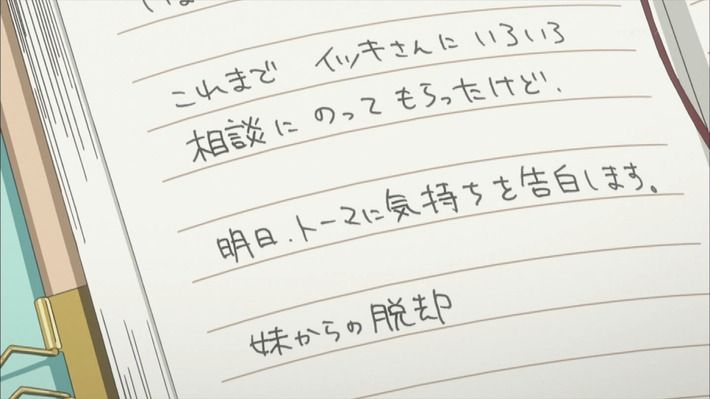 これまで イッキさんに いろいろ
相談に のって もらったけど、
明日、トーマに気持ちを告白します。
妹からの脱却